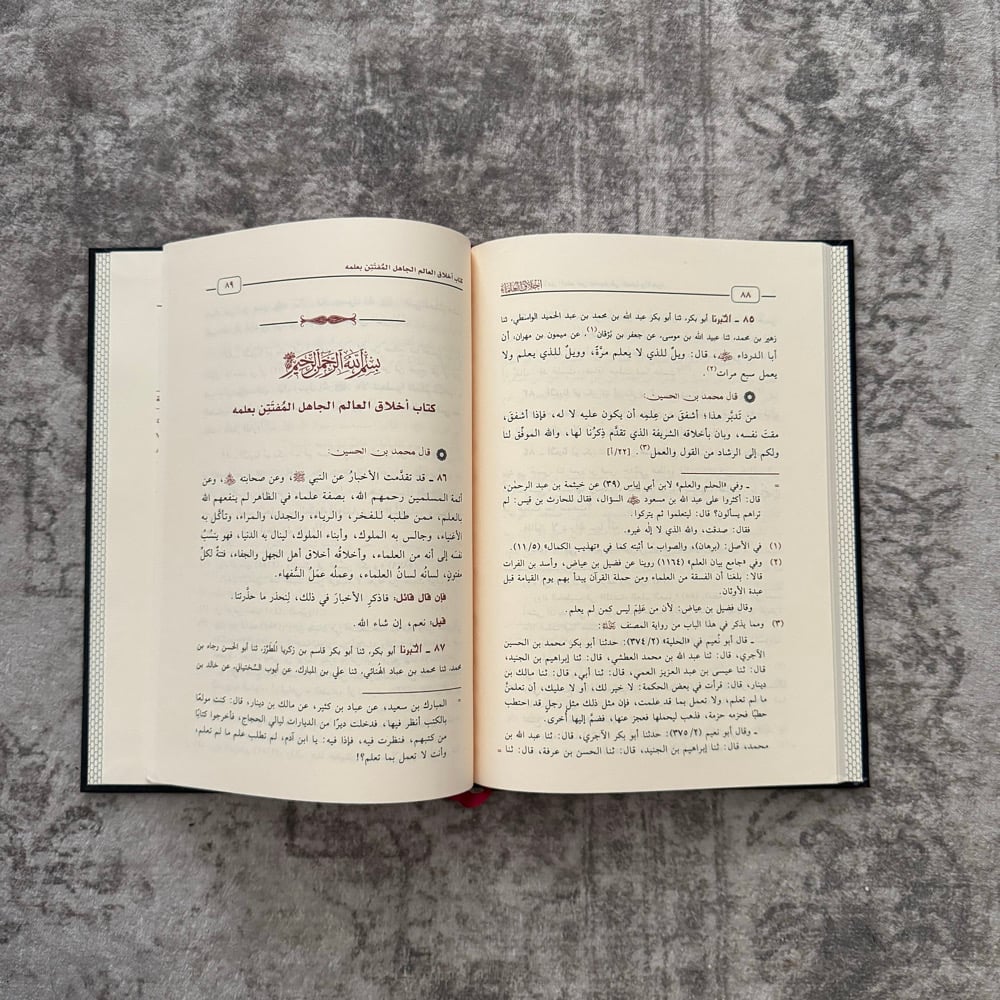 ٨٨
أخلاق العلماء
٨٥ ـ أخبرنا أبو بكر، ثنا أبو بكر عبد الله بن محمد بن عبد الحميد الواسطي، ثنا
زهير بن محمد، ثنا عبيد الله بن موسى، عن جعفر بن بُرْقان(١)، عن ميمون بن مهران، أن
أبا الدرداء ﷺ، قال: ويلٌ للذي لا يعلم مرَّةً، وويلٌ للذي يعلم ولا
يعمل سبع مرات(٢).
قال محمد بن الحسين:
من تَدبَّر هذا؛ أشفق من عِلمِه أن يكون عليه لا له، فإذا أشفقَ،
مقتَ نفسه، وبان بأخلاقه الشريفة الذي تقدَّم ذِكرُنا لها، والله الموفِّق لنا
ولكم إلى الرشاد من القول والعمل(٣). [٢٢/أ]
= ـ وفي «الحلم والعلم» لابن أبي إياس (٣٩) عن خيثمة بن عبد الرحمٰن،
قال: أكثروا على عبد الله بن مسعود السؤال، فقال للحارث بن قيس: لم
تراهم يسألون؟ قال: ليتعلموا ثم يتركوا.
فقال: صدقت، والله الذي لا إله غيره.
(١) في الأصل: (برهان)، والصواب ما أثبته كما في «تهذيب الكمال» (١١/٥).
(٢) وفي «جامع بيان العلم» (١١٦٤) روينا عن فضيل بن عياض، وأسد بن الفرات
قالا: بلغنا أن الفسقة من العلماء ومن حملة القرآن يبدأ بهم يوم القيامة قبل
عبدة الأوثان.
وقال فضيل بن عياض: لأن من عَلِمَ ليس كمن لم يعلم.
(٣) ومما يذكر في هذا الباب من رواية المصنف:
ـ قال أبو نُعيم في «الحلية» (٣٧٤/٢): حدثنا أبو بكر محمد بن الحسين
الآجري، قال: ثنا عبد الله بن محمد العطشي، قال: ثنا إبراهيم بن الجنيد،
قال: ثنا عيسى بن عبد العزيز العمي، قال: ثنا أبي، قال: ثنا مالك بن
دينار، قال: قرأت في بعض الحكمة: لا خير لك، أو لا عليك، أن تعلمنَّ
ما لم تعلم، ولا تعمل بما قد علمت، فإن مثل ذلك مثل رجلٍ قد احتطب
حطبًا فحزمه حزمة، فذهب ليحملها فعجز عنها، فضمَّ إليها أُخرى.
ـ وقال أبو نعيم (٣٧٥/٢): حدثنا أبو بكر الآجري، قال: ثنا عبد الله بن
محمد، قال: ثنا إبراهيم بن الجنيد، قال: ثنا الحسن بن عرفة، قال: ثنا =
كتاب أخلاق العالم الجاهل المُفتَتِن بعلمه
٨٩
بسم الله الرحمن الرحيم
كتاب أخلاق العالم الجاهل المُفتَتِن بعلمه
قال محمد بن الحسين:
٨٦ ـ قد تقدَّمت الأخبارُ عن النبي ﷺ، وعن صحابته، وعن
أئمة المسلمين رحمهم الله، بصفة علماء في الظاهر لم ينفعهم الله
بالعلم، ممن طلبه للفخر، والرياء، والجدل، والمراء، وتأكَّل به
الأغنياء، وجالس به الملوك، وأبناء الملوك، لينال به الدنيا، فهو يَنسُبُ
نفسَه إلى أنه من العلماء، وأخلاقُه أخلاق أهل الجهل والجفاء، فتنةٌ لكلِّ
مفتونٍ، لسانُه لسانُ العلماء، وعملُه عملُ السُّفهاء.
فإن قال قائل: فاذكرِ الأخبارَ في ذلك، لِنحذر ما حذَّرتنا.
قيل: نعم، إن شاء الله.
٨٧ ـ أخبرنا أبو بكر، ثنا أبو بكر قاسم بن زكريا المُطرِّز، ثنا أبو الحسن رجاء بن
محمد، ثنا محمد بن عباد الهُنائي، ثنا علي بن المبارك، عن أيوب السَّختياني، عن خالد بن
= المبارك بن سعيد، عن عباد بن كثير، عن مالك بن دينار، قال: كنت مولعًا
بالكتب أنظر فيها، فدخلت ديرًا من الديارات ليالي الحجاج، فأخرجوا كتابًا
من كتبهم، فنظرت فيه، فإذا فيه: يا ابن آدم، لم تطلب علم ما لم تعلم،
وأنت لا تعمل بما تعلم؟!